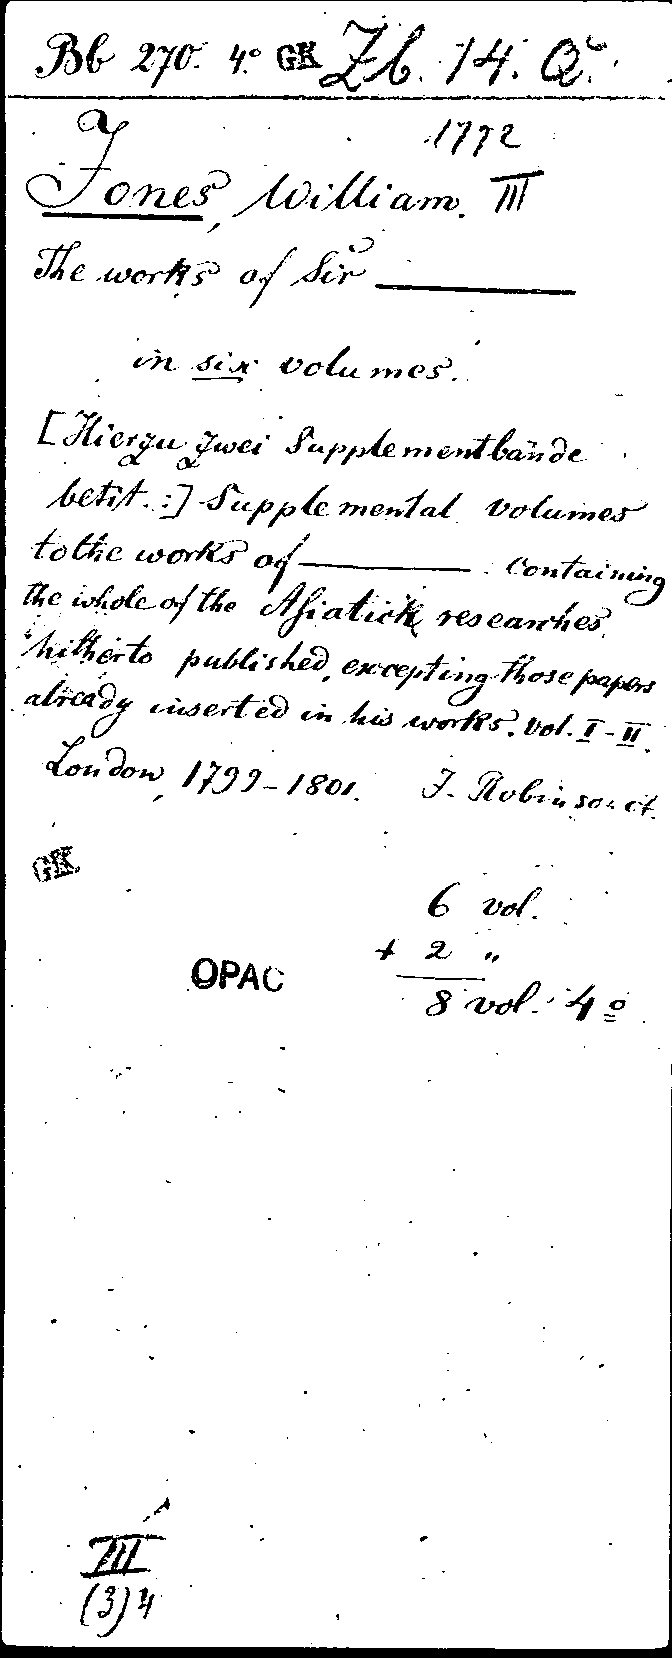 Bb 270. 4.° GK Zb. 14. Q.
1772
Jones, William. III
The works of Sir ———
in six volumes.
[Hierzu zwei Supplementbände
betit.:] Supplemental volumes
to the works of ——— containing
the whole of the Asiatick researches
hitherto published, excepting those papers
already inserted in his works. Vol. I-II.
London, 1799-1801. J. Robinson et.
GK
6 vol.
+ 2 "
OPAC
8 vol. 4°
III
(3) 4